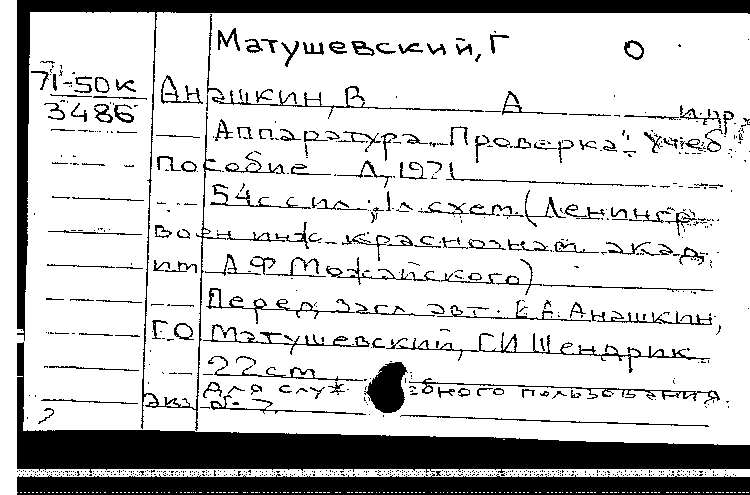 Матушевский, Г О
71-50к
3486
Анашкин, В А и др.
Аппаратура „Проверка". Учеб.
пособие Л, 1971
54с с ил.; 1л схем. (Ленингр
воен инж. краснознам. акад.
им А Ф Можайского)
Перед загл. авт. Е А. Анашкин,
ГО Матушевский, Г.И Шендрик
22см
Для служебного пользования.
Экз № 7